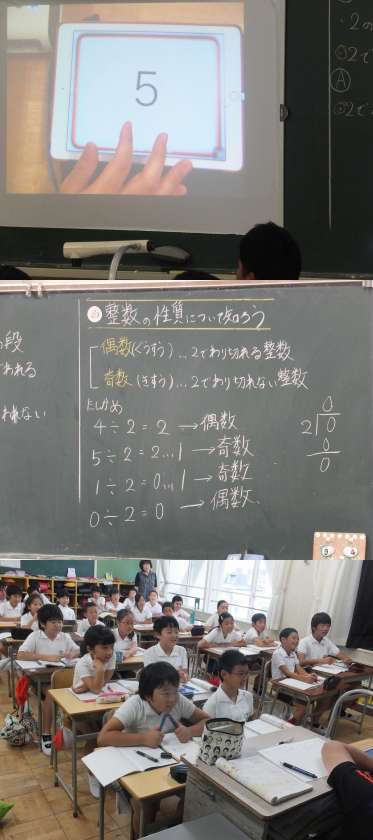 5
・2の
○2で
Ⓐ
○2で
の段
われる
われない
め 整数の性質について知ろう
偶数(ぐうすう)…2でわり切れる整数
奇数(きすう)…2でわり切れない整数
たしかめ
4÷2=2 →偶数
5÷2=2…1 →奇数
1÷2=0…1 →奇数
0÷2=0 →偶数
0
2)0
0
0
9 4